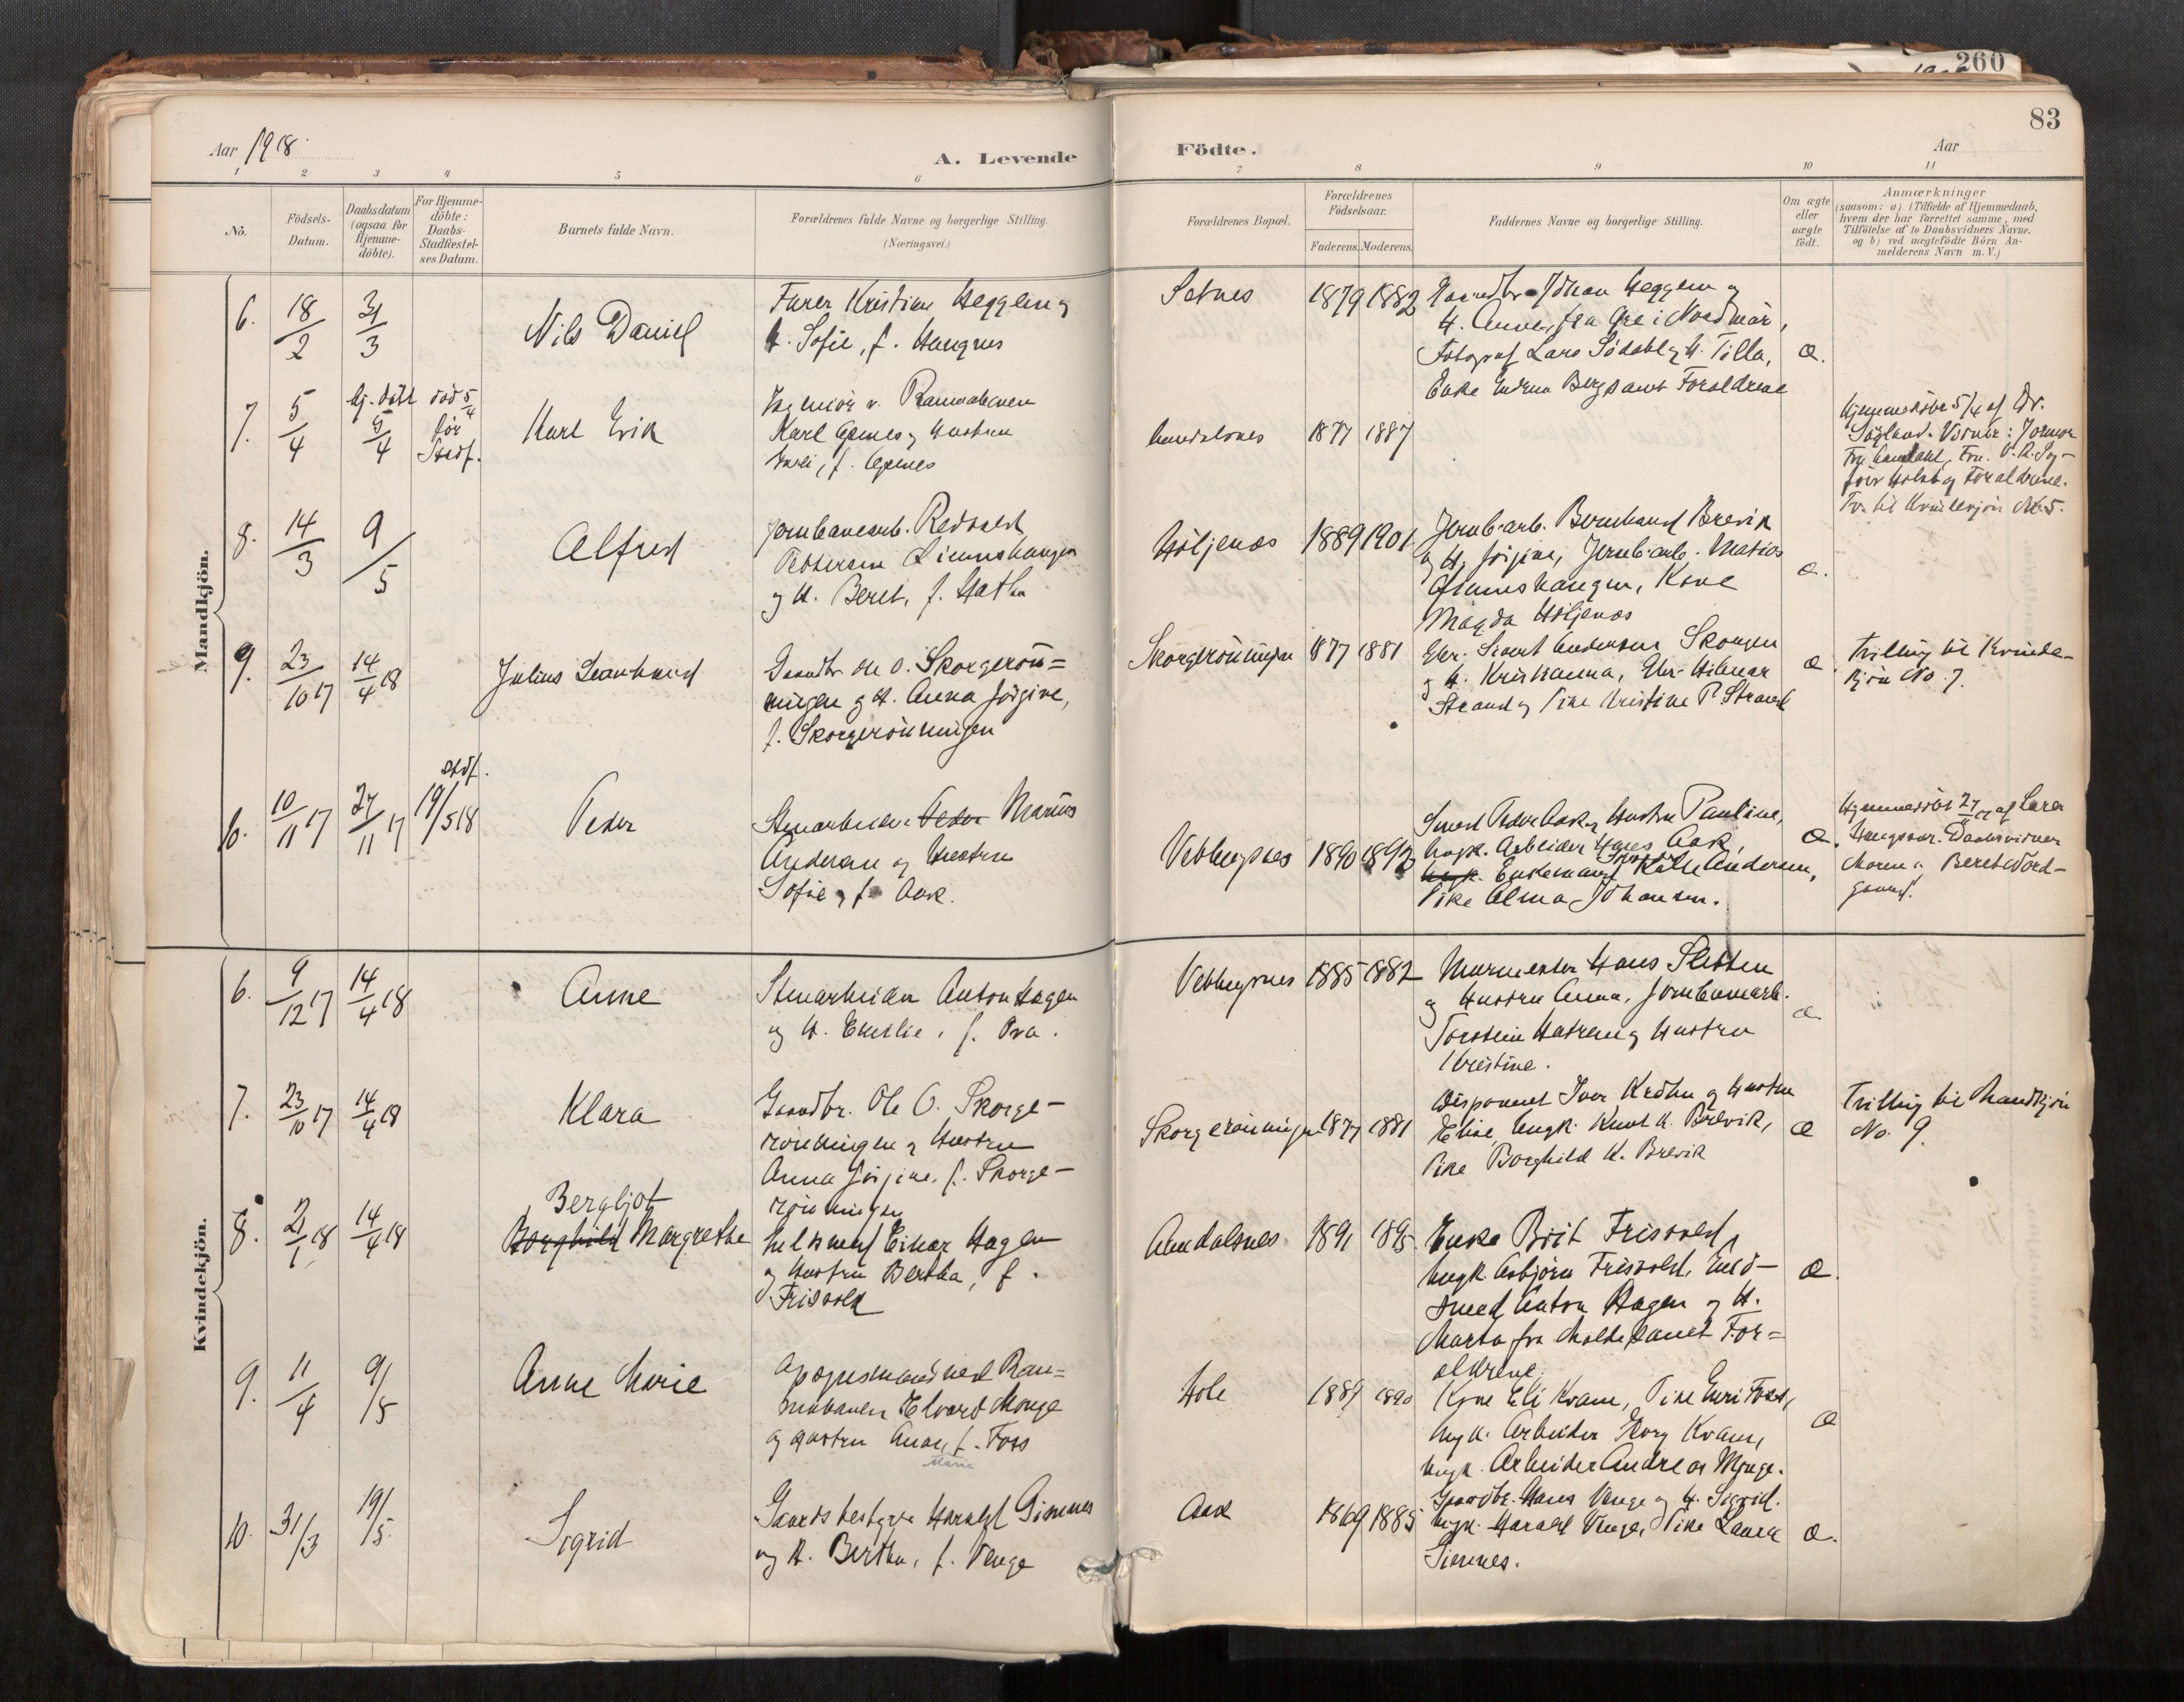 260
83
Aar 1918
A. Levende
Födte.
Aar
1 2 3 4 5 6 7 8 9 10 11
No.
Födsels-
Datum.
Daabsdatum
(ogsaa for
Hjemme-
döbte).
For Hjemme-
döbte:
Daabs-
Stadfæstel-
ses Datum.
Barnets fulde Navn.
Forældrenes fulde Navne og borgerlige Stilling.
(Næringsvei.)
Forældrenes Bopæl.
Forældrenes
Födselsaar.
Faderens. Moderens.
Faddernes Navne og borgerlige Stilling.
Om ægte
eller
uægte
födt.
Anmærkninger
(saasom: a) i Tilfælde af Hjemmedaab,
hvem der har forrettet samme, med
Tilföielse af to Daabsvidners Navne.
og b) ved uægtefödte Börn An-
melderens Navn m. V.)
Mandkjön.
6. 18/2 31/3
Nils Daniel
Furer Kristian Heggem og
H. Sofie, f. Haugnes
Setnes 1879 1882
Gaardbr. Johan Heggem og
H. Anne, fra Øre i Nordmør,
Fotograf Lars Södahl og H. Tilla, æ.
Enke Berg samt Forældrene
7. 5/4 hj. döbt 5/4
död 5/4
før
Stadf.
Karl Erik
Ingeniør v. Raumabanen
Karl og Hustru
f.
Aandalsnes 1877 1887
Hjemmedöbt 5/4 af Dr.
Sögland. Vidner: Jormor
Fru Fru
Holst og Forældrene.
Tv. til Kvindekjön No 5.
8. 14/3 9/5
Alfred
Jernbanearb. Redvald
Pettersen
og H. Beret, f. Hatle
Höljenes 1889 1901
Jernb.arb. Bernhard Brevik
og H. Jörgine, Jernb.arb. Matias
Kone æ.
Magda Höljenes
9. 23/10 17 14/4 18
Julius Leonhard
Gaardbr. Ole O. Skorgerön=
ningen og H. Anna Jörgine,
f. Skorgerönningen
Skorgerönningen 1877 1881
Gbr. Sivert Andersen Skorgen
og H. Kristianna, Gbr. Hilmar
Strand og Pike Kristine P. Strand
æ.
Tvilling til Kvinde-
kjön No. 7.
10. 10/11 17 27/11 17
stdf.
19/5 18
Peder
Stenarbeider Peder Marius
Andersen og Hustru
Sofie, f. Aak.
Veblungsnes 1890 1892
Smed Peder Aak og Hustru Pauline,
Ungk. Arbeider Hans Aak,
Ungk. Enkemand Andersen,
Pike Alma Johansen.
æ.
Hjemmedöbt 27/11 17 af Lærer
Daabsvidner
Maren og Beret
Kvindekjön.
6. 9/12 17 14/4 18
Anne
Stenarbeider Anton Hagen
og H. Emilie, f. Bra.
Veblungsnes 1885 1882
Murmester Hans Sletten
og Hustru Anna, Jernbanearb.
Torstein Hatrem og Hustru
Kristine.
æ
7. 23/10 17 14/4 18
Klara
Gaardbr. Ole O. Skorge-
rönningen og Hustru
Anna Jörgine, f. Skorge-
rönningen
Skorgerönningen 1877 1881
Disponent Iver Krohn og Hustru
Elise, Ungk. Knut K. Brevik,
Pike Borghild K. Brevik
æ
Tvilling til Mandkjön
No. 9.
8. 2/1 18 14/4 18
Bergljot
Borghild Margrethe
Guldsmed Einar Hagen
og Hustru Bertha, f.
Frisvold
Aandalsnes 1891 1895
Enke Brit Frisvold,
Ungk. Asbjörn Frisvold, Guld-
smed Anton Hagen og H.
Marta fra Molde samt For=
ældrene.
æ.
9. 11/4 9/5
Anne Marie
Opsynsmand ved Rau-
mabanen Edvard Monge
og Hustru Anne, f. Foss
Marie
Hole 1889 1890
Kone Eli Kvam, Pike Guri Foss,
Ungk. Arbeider Georg Kvam,
Ungk. Arbeider Andreas Monge.
æ
10. 31/3 19/5
Sigrid
Gaardsbestyrer Harald Gimnes
og H. Bertha, f. Venge
Aak 1869 1885
Gaardbr. Hans Venge og H. Sigrid.
Ungk. Harald Venge, Pike Laura
Gimnes.
æ.